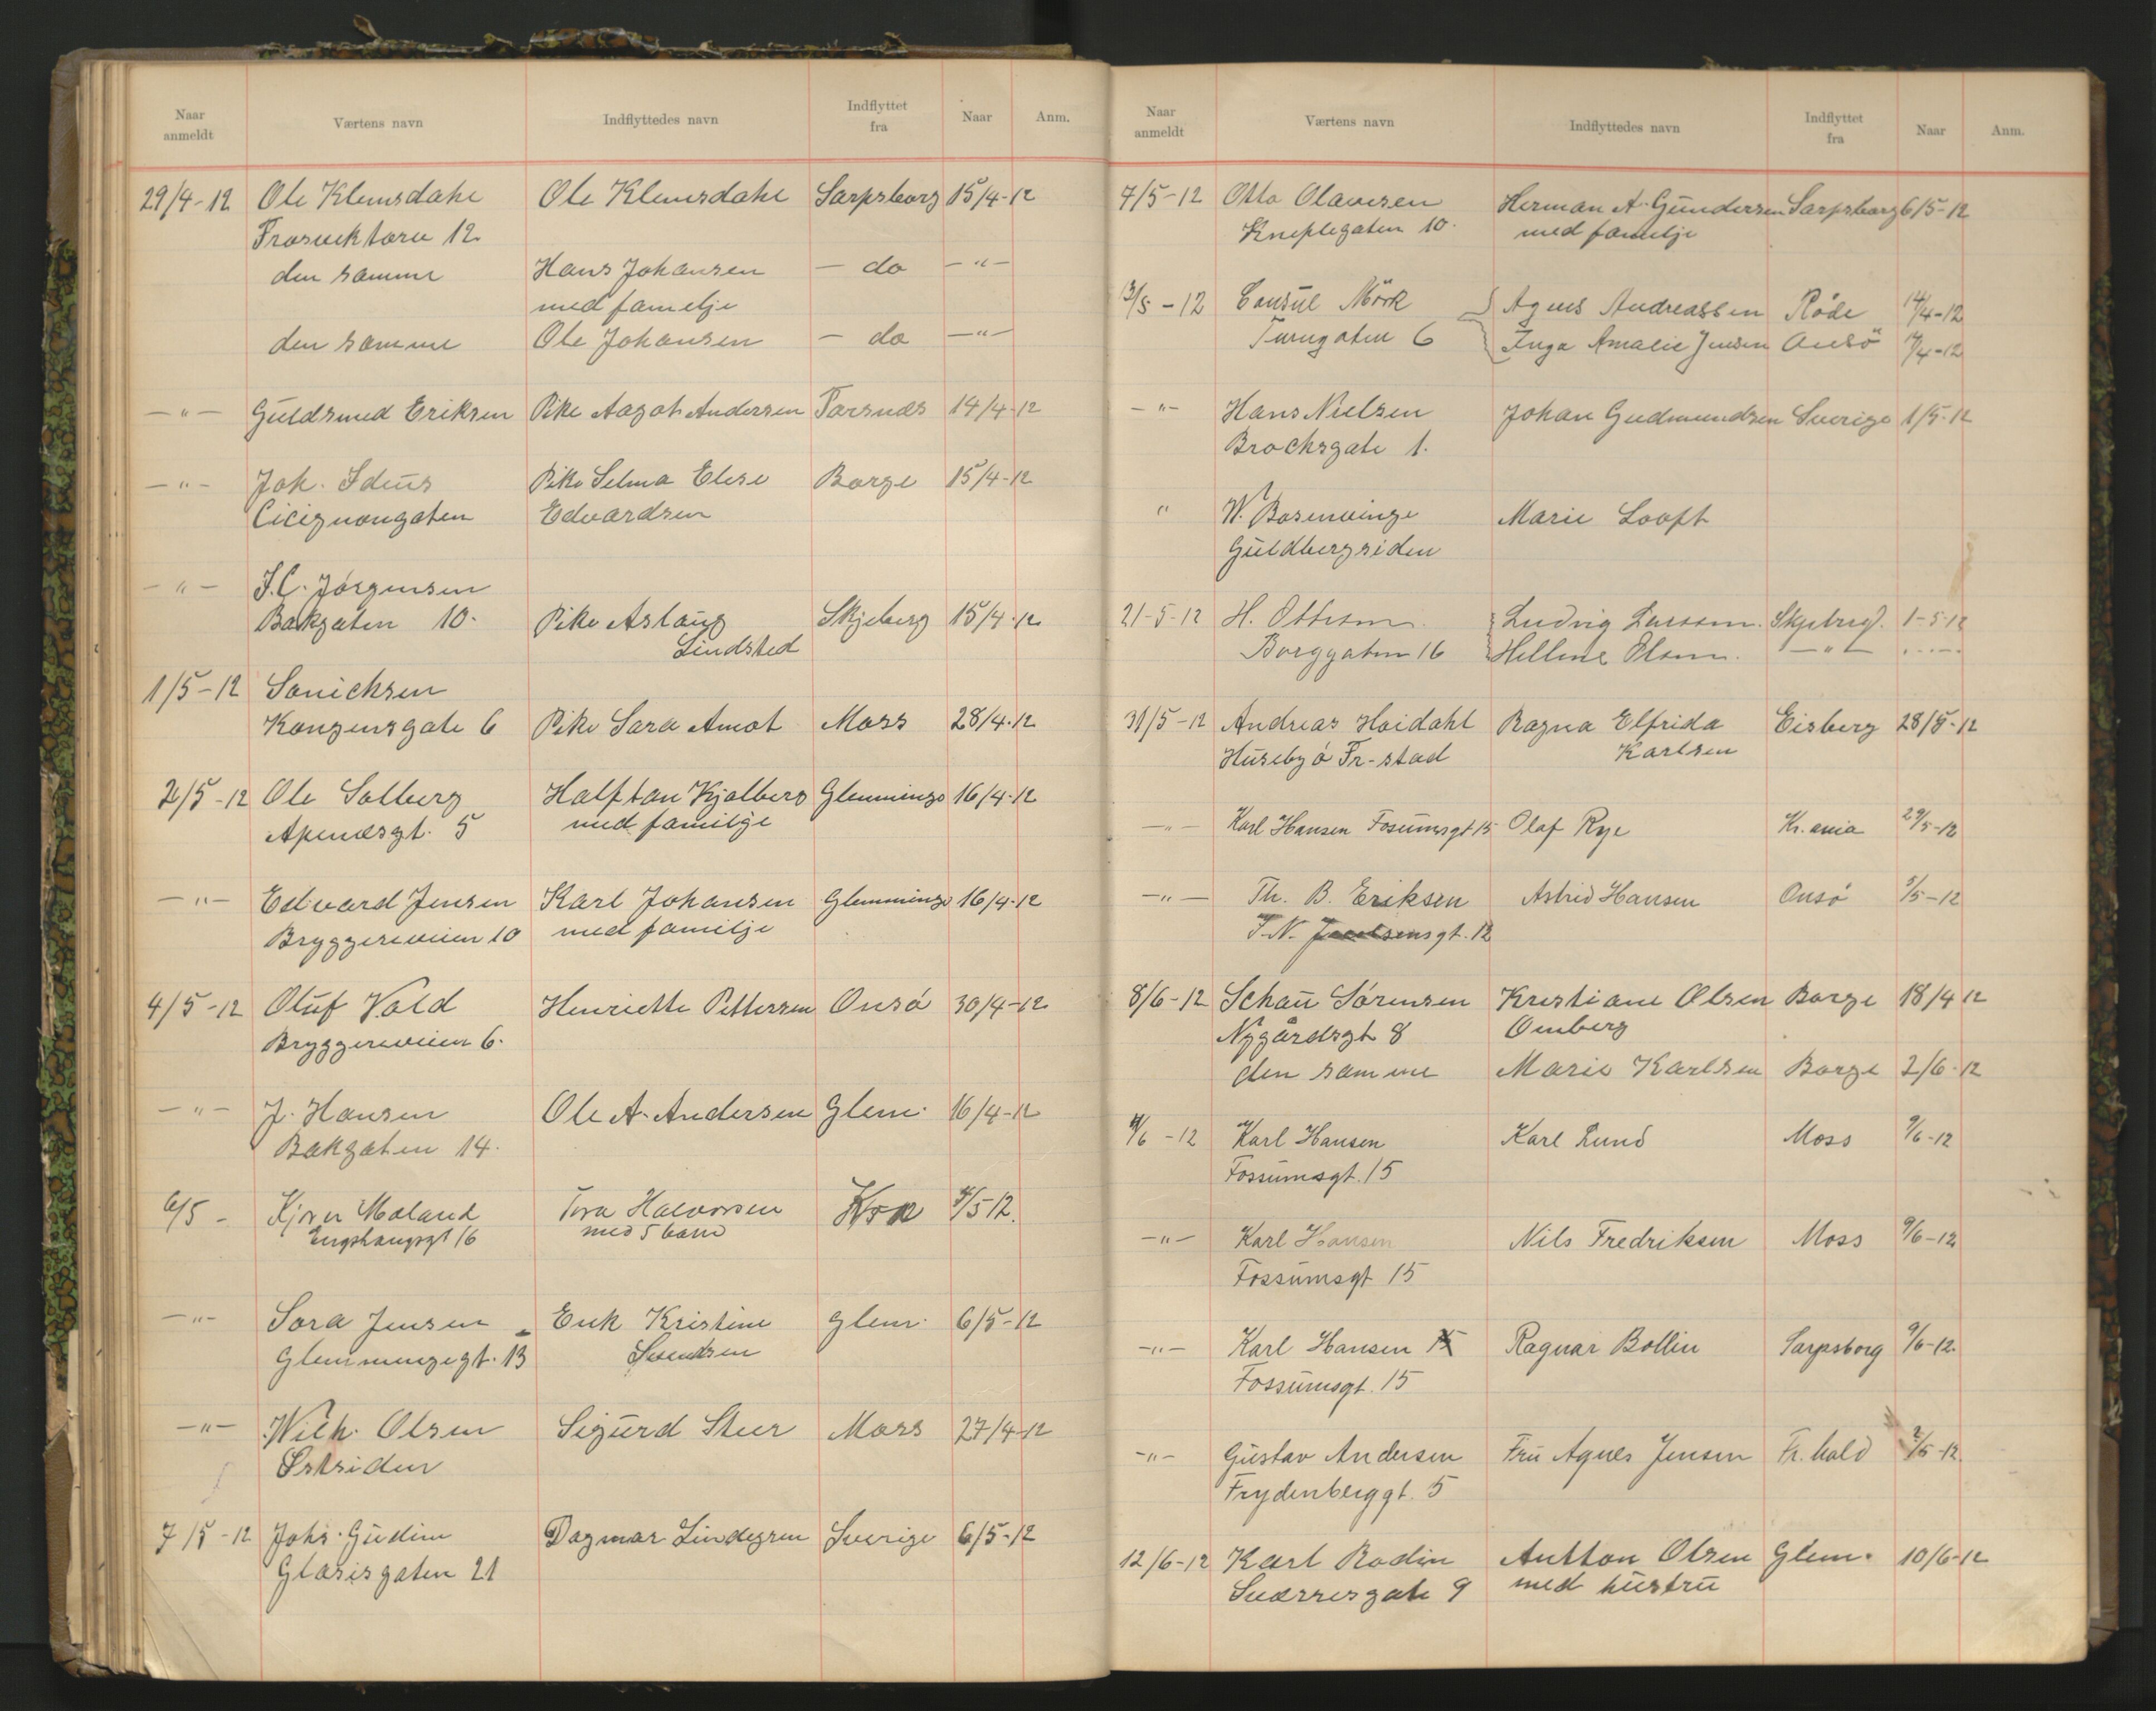 Naar anmeldt Værtens navn Indflyttedes navn Indflyttet fra Naar Anm.
29/4-12 Ole Klemsdahl Ole Klemsdahl Sarpsborg 15/4-12
12.
den samme Hans Johansen — do — " —
med familje
den samme Ole Johansen — do — " —
— " — Guldsmed Eriksen Pike Aagot Andersen Torsnæs 14/4-12
— " — Joh. Ideus Pike Selma Elise Borge 15/4-12
Cicignongaten Edvardsen
— " — I.C. Jørgensen
Bakgaten 10. Pike Aslaug Skjeberg 15/4-12
Lindsted
1/5-12 Sonicksen
Kongensgate 6 Pike Sara Amot Moss 28/4-12
2/5-12 Ole Solberg Halfdan Kjølberg Glemminge 16/4-12
Apenæsgt. 5 med familje
— " — Edvard Jensen Karl Johansen Glemminge 16/4-12
Bryggeriveien 10 med familje
4/5-12 Oluf Vold Henriette Pettersen Onsø 30/4-12
Bryggeriveien 6.
— " — J. Hansen Ole A. Andersen Glem. 16/4-12
Bakgaten 14.
6/5 - Moland Tora Halvorsen /5 12.
Enghaugsgt 16 med 5 barn
— " — Sara Jensen Enk Kristine Glem. 6/5-12
Glemmengegt. 13 Svendsen
— " — Wilh. Olsen Sigurd Steer Moss 27/4-12
Østsiden
7/5-12 Johs. Gudim Dagmar Lindegren Sverige 6/5-12
Glasisgaten 21
Naar anmeldt Værtens navn Indflyttedes navn Indflyttet fra Naar Anm.
7/5-12 Otto Olavesen Herman A. Gundersen Sarpsborg 6/5-12
Kneplegaten 10. med familje
13/5-12 Consul Mörk Agnes Andreassen Råde 14/4-12
Turngaten 6 Inga Amalie Jensen Onsö /4-12
— " — Hans Nielsen Johan Gudmundsen Sverige 1/5-12
Brochsgate 1.
" W. Rosenvinge Marie Looft
Guldbergsiden
21-5-12 H. Ottesen Ludvig Larssen. Skjebergd. 1-5-12
Borggaten 16 Hellene Olsen. — " —
31/5-12 Andreas Hoidahl Ragna Elfrida Eisberg 28/5-12
Husebyø Fr-stad Karlsen
— " — Karl Hansen Fosumsgt 15 Olaf Rye Kr.ania 29/5-12
— " — Th. B. Eriksen Astrid Hansen Onsø /5-12
T.N. Jacobsensgt. 12
8/6-12 Schau Sørensen Kristiane Olsen Borge 18/4 12
Nygårdsgt 8 Omberg
den samme Marie Karlsen Borge 2/6-12
/6-12 Karl Hansen Karl Lund Moss 9/6-12
Fossumsgt. 15
— " — Karl Hansen Nils Fredriksen Moss 9/6-12
Fossumsgt 15
— " — Karl Hansen 15 Ragnar Bollin Sarpsborg 9/6-12.
Fossumsgt. 15
— " — Gustav Andersen Fru Agnes Jensen Fr.hald 2/5-12.
Frydenberggt. 5
12/6-12 Karl Rodin Antton Olsen Glem. 10/6-12
Sværresgate 9 med hustru